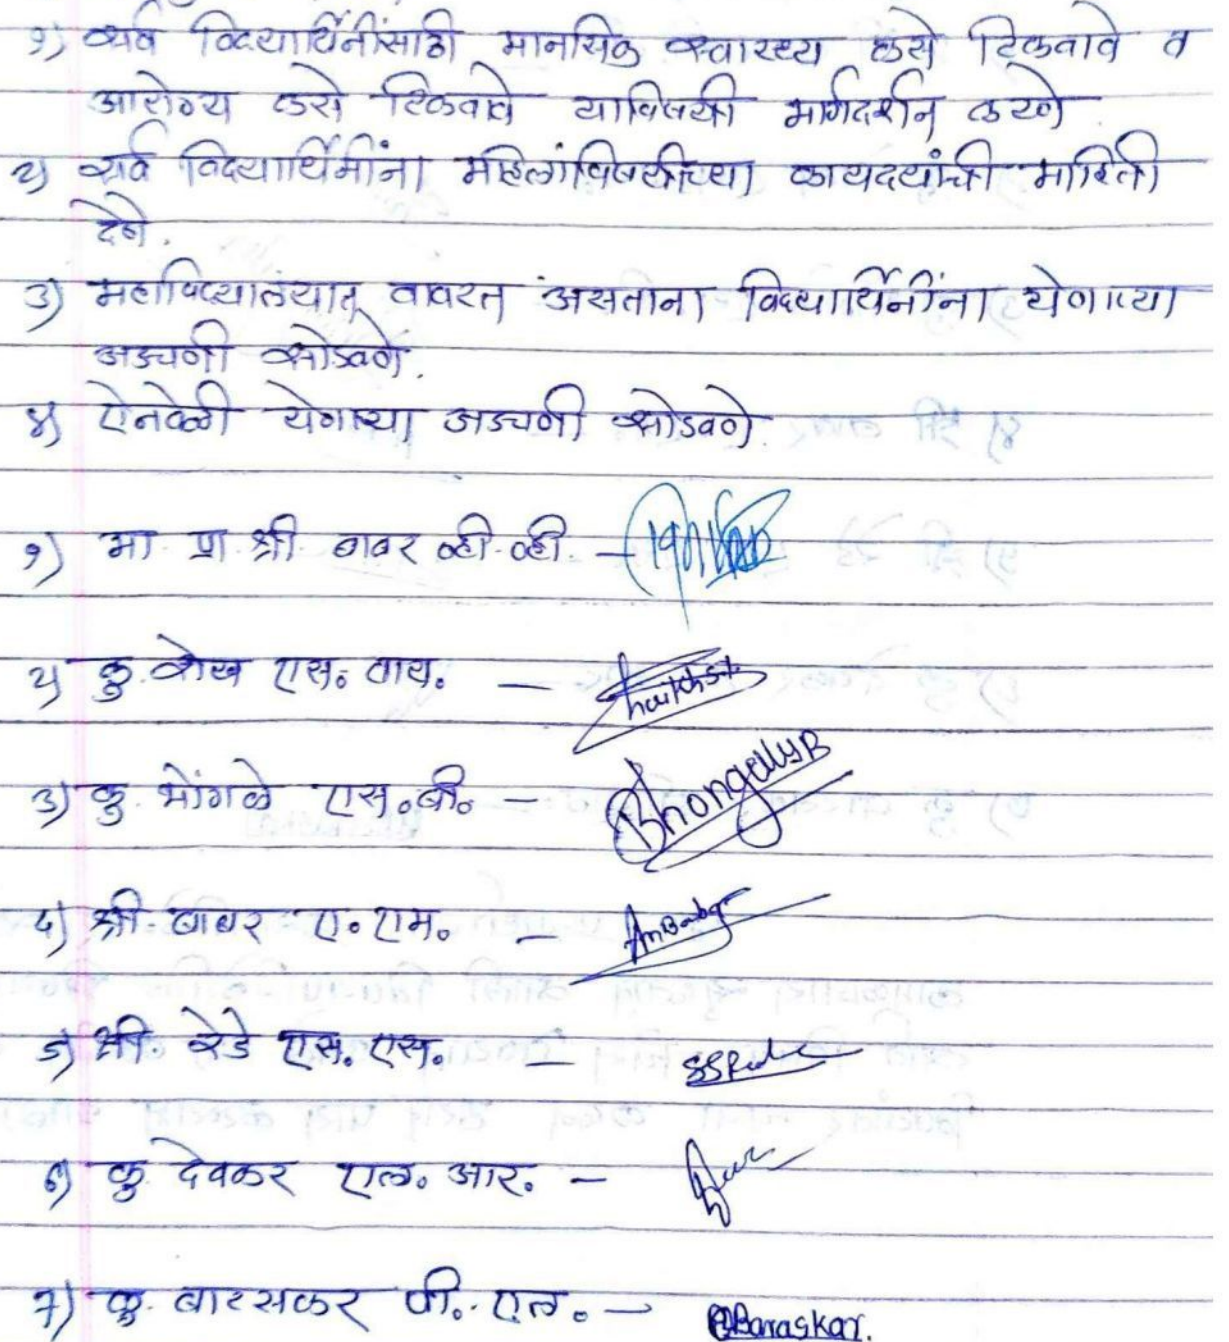 १) सर्व विद्यार्थिनींसाठी मानसिक स्वास्थ्य कसे टिकवावे व
आरोग्य कसे टिकवावे याविषयी मार्गदर्शन करणे
२) सर्व विद्यार्थिनींना महिलांविषयीच्या कायदयांची माहिती
देणे.
३) महाविद्यालयात वावरत असताना विद्यार्थिनींना येणाऱ्या
अडचणी सोडवणे.
४) ऐनवेळी येणाऱ्या अडचणी सोडवणे.
१) मा. प्रा. श्री बाबर व्ही. व्ही. –
२) कु. शेख एस. वाय. – Shaikh S.Y.
३) कु. भोंगळे एस. बी. – Bhongale
४) श्री. बाबर ए. एम. –
५) श्री. रेडे एस. एस. –
६) कु. देवकर एल. आर. –
७) कु. बारसकर पी. एल. – Baraskar.